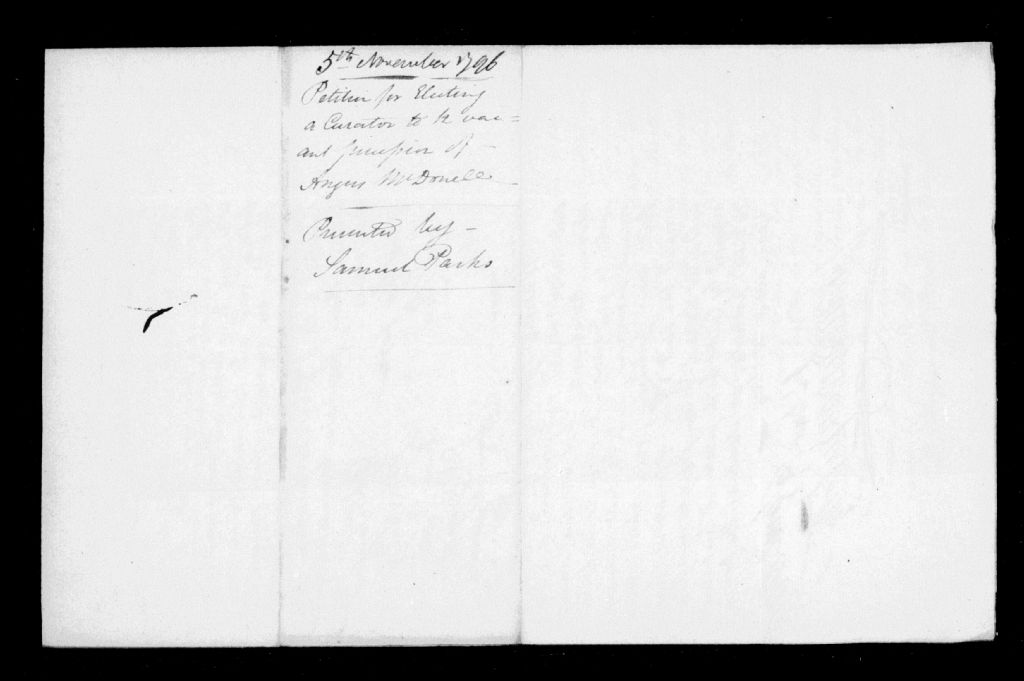 5th November 1796
Petition for Electing
a Curator to the vac=
ant succession of
Angus McDonell
Presented by
Samuel Parks